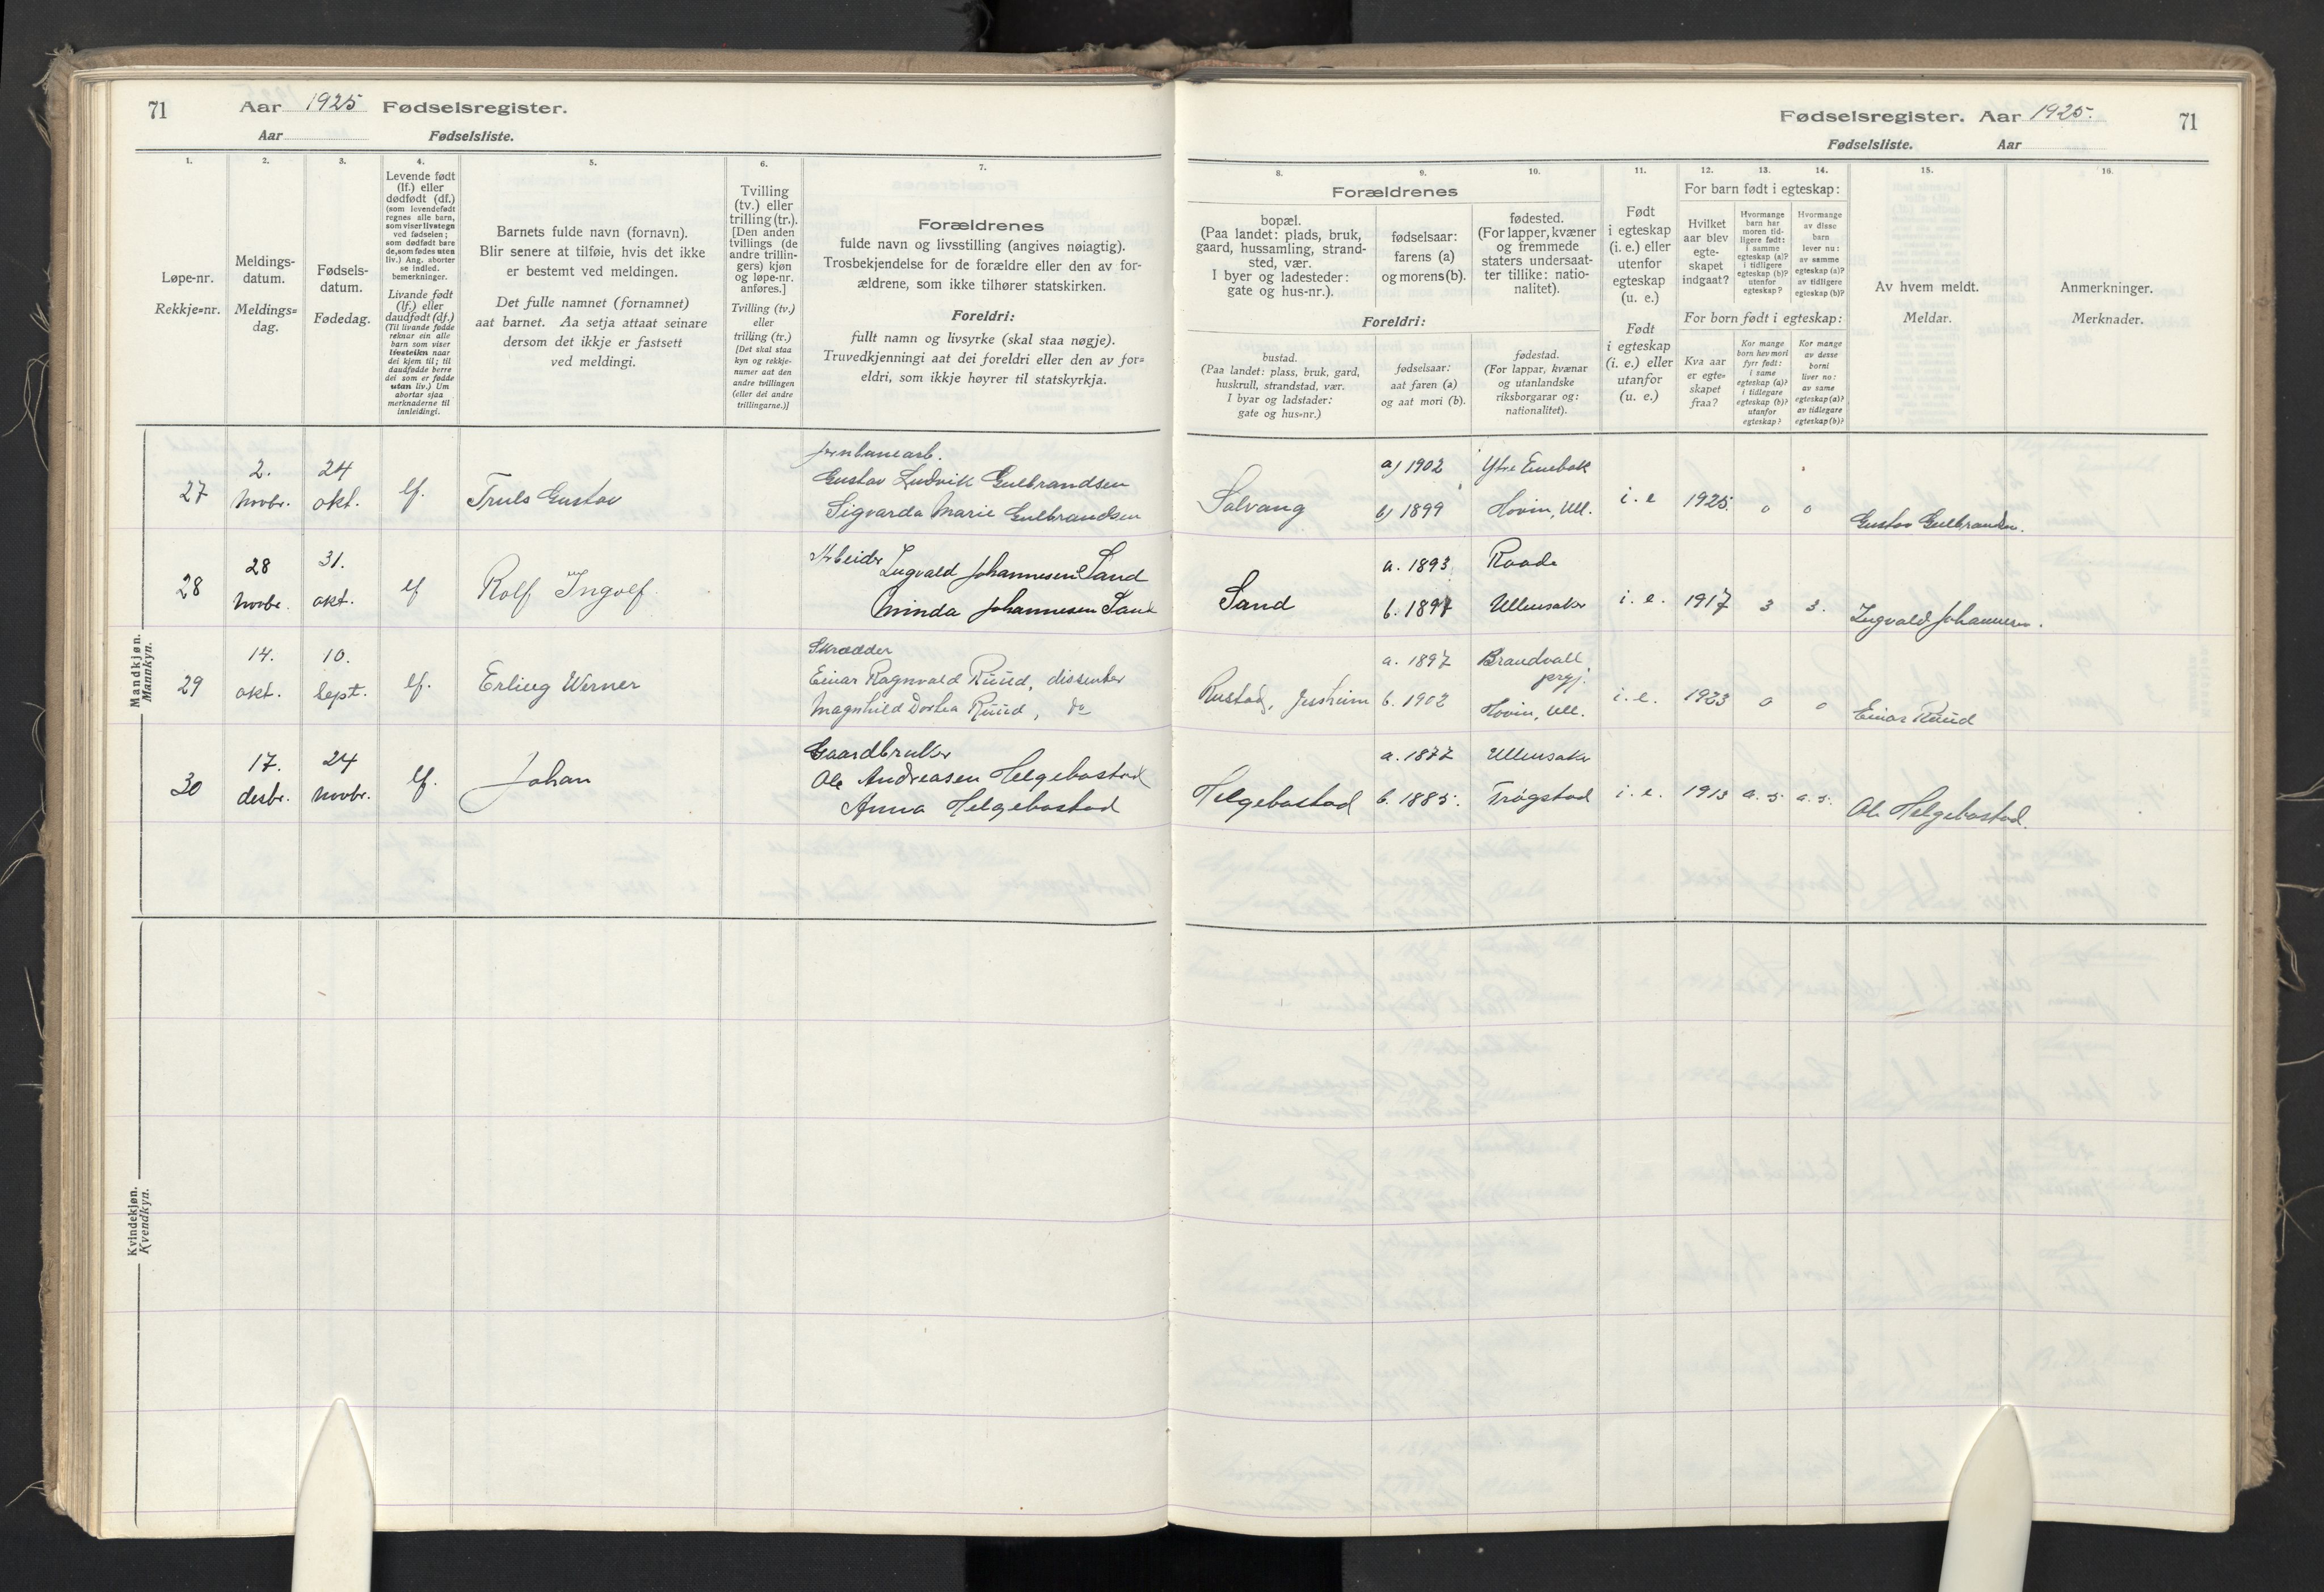 71 Aar 1925 Fødselsregister.
Aar Fødselsliste.
1. 2. 3. 4. 5. 6. 7.
Løpe-nr.
Rekkje-nr.
Meldings-
datum.
Meldings-
dag.
Fødsels-
datum.
Fødedag.
Levende født
(lf.) eller
dødfødt (df.)
(som levendefødt
regnes alle barn,
som viser livstegn
ved fødselen;
som dødfødt bare
de, som fødes uten
liv.) Ang. aborter
se indled.
bemerkninger.
Livande født
(lf.) eller
daudfødt (df.)
(Til livande fødde
reknar ein alle
barn som viser
livsteikn naar
dei kjem til; til
daudfødde berre
dei som er fødde
utan liv.) Um
abortar sjaa
merknaderne til
innleidingi.
Barnets fulde navn (fornavn).
Blir senere at tilføie, hvis det ikke
er bestemt ved meldingen.
Det fulle namnet (fornamnet)
aat barnet. Aa setja attaat seinare
dersom det ikkje er fastsett
ved meldingi.
Tvilling
(tv.) eller
trilling (tr.).
[Den anden
tvillings (de
andre trillin-
gers) kjøn
og løpe-nr.
anføres.]
Tvilling (tv.)
eller
trilling (tr.)
[Det skal staa
kyn og rekkje-
numer aat den
andre tvillingen
(eller dei andre
trillingarne.)]
Forældrenes
fulde navn og livsstilling (angives nøiagtig).
Trosbekjendelse for de forældre eller den av for-
ældrene, som ikke tilhører statskirken.
Foreldri:
fullt namn og livsyrke (skal staa nøgje).
Truvedkjenningi aat dei foreldri eller den av for-
eldri, som ikkje høyrer til statskyrkja.
Mandkjøn.
Mannkyn.
27
2.
novbr.
24
okt.
lf.
Truls Gustav
jernbanearb.
Gustav Ludvik Gulbrandsen
Sigvarda Marie Gulbrandsen
28
28
novbr.
31.
okt.
lf
Rolf Ingolf
Arbeider Ingvald Johannesen Sand
Minda Johannesen Sand
29
14.
okt.
10.
sept.
lf.
Erling Werner
Skrædder
Einar Ragnvald Ruud, dissenter
Magnhild Dorthea Ruud, do
30
17.
desbr.
24
novbr.
lf.
Johan
Gaardbruker
Ole Andreasen Helgebostad
Anna Helgebostad
Kvindekjøn.
Kvendkyn.
Fødselsregister. Aar 1925. 71
Fødselsliste. Aar
8. 9. 10. 11. 12. 13. 14. 15. 16.
Forældrenes
bopæl.
(Paa landet: plads, bruk,
gaard, hussamling, strand-
sted, vær.
I byer og ladesteder:
gate og hus-nr.).
fødselsaar:
farens (a)
og morens (b).
fødested.
(For lapper, kvæner
og fremmede
staters undersaat-
ter tillike: natio-
nalitet).
Foreldri:
bustad.
(Paa landet: plass, bruk, gard,
huskrull, strandstad, vær.
I byar og ladstader:
gate og hus-nr.)
fødselsaar:
aat faren (a)
og aat mori (b).
fødestad.
(For lappar, kvænar
og utanlandske
riksborgarar og:
nationalitet).
Født
i egteskap
(i. e.) eller
utenfor
egteskap
(u. e.)
Født
i egteskap
(i. e.) eller
utanfor
(u. e.)
For barn født i egteskap:
Hvilket
aar blev
egte-
skapet
indgaat?
Hvormange
barn har
moren tid-
ligere født:
i samme
egteskap (a)?
i tidligere
egteskap (b)?
utenfor
egteskap?
Hvormange
av disse
barn
lever nu:
av samme
egteskap (a)?
av tidligere
egteskap (b)?
For born født i egteskap:
Kva aar
er egte-
skapet
fraa?
Kor mange
born hev mori
fyrr født:
i same
egteskap (a)?
i tidlegare
egteskap (b)?
utanfor
egteskap?
Kor mange
av desse
borni
liver no:
av same
egteskap (a)?
av tidlegare
egteskap (b)?
Av hvem meldt.
Meldar.
Anmerkninger.
Merknader.
Solvang
a) 1902 Ytre Enebak
b) 1899 Hovin, Ull.
i. e 1925. 0 0
Gustav Gulbrandsen.
Sand
a. 1893. Raade
b. 1897 Ullensaker
i. e. 1917 3 3.
Ingvald Johannesen.
Rustad, Jessheim
a. 1897 Brandvall
prgj.
b. 1902 Hovin, Ull.
i. e. 1923 0 0
Einar Ruud
Helgebostad
a. 1877 Ullensaker
b. 1885. Trøgstad
i. e. 1913 a. 5 a. 5.
Ole Helgebostad.